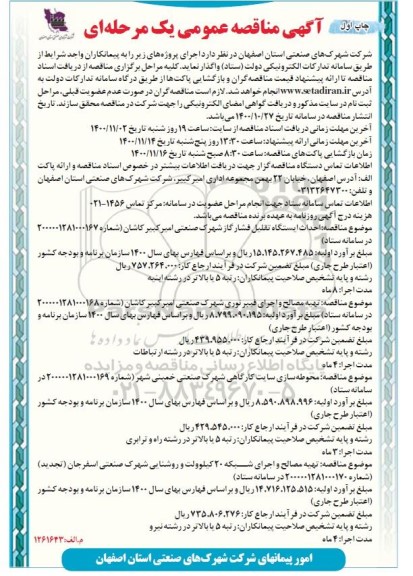 چاپ اول
آگهی مناقصه عمومی یک مرحله‌ای
شرکت شهرک‌های صنعتی استان اصفهان در نظر دارد اجرای پروژه‌های زیر را به پیمانکاران واجد شرایط از
طریق سامانه تدارکات الکترونیکی دولت (ستاد) واگذار نماید. کلیه مراحل برگزاری مناقصه از دریافت اسناد
مناقصه تا ارائه پیشنهاد قیمت مناقصه‌گران و بازگشایی پاکت‌ها از طریق درگاه سامانه تدارکات دولت به
آدرس www.setadiran.ir انجام خواهد شد. لازم است مناقصه‌گران در صورت عدم عضویت قبلی، مراحل
ثبت نام در سایت مذکور و دریافت گواهی امضای الکترونیکی را جهت شرکت در مناقصه محقق سازند. تاریخ
انتشار مناقصه در سامانه تاریخ ۱۴۰۰/۱۰/۲۷ می‌باشد.
آخرین مهلت زمانی دریافت اسناد مناقصه از سایت: ساعت ۱۹ روز شنبه تاریخ ۱۴۰۰/۱۱/۰۲
آخرین مهلت زمانی ارائه پیشنهاد: ساعت ۱۳:۳۰ روز پنج‌شنبه تاریخ ۱۴۰۰/۱۱/۱۴
زمان بازگشایی پاکت‌های مناقصه: ساعت ۸:۳۰ صبح شنبه تاریخ ۱۴۰۰/۱۱/۱۶
اطلاعات تماس دستگاه مناقصه‌گزار جهت دریافت اطلاعات بیشتر در خصوص اسناد مناقصه و ارائه پاکت
الف: آدرس اصفهان، خیابان ۲۲ بهمن مجموعه اداری امیرکبیر، شرکت شهرک‌های صنعتی استان اصفهان
و تلفن: ۰۳۱۳۲۶۴۷۳۰۰
اطلاعات تماس سامانه ستاد جهت انجام مراحل عضویت در سامانه: مرکز تماس ۱۴۵۶-۰۲۱
هزینه درج آگهی روزنامه به عهده برنده مناقصه می‌باشد.
موضوع مناقصه: احداث ایستگاه تقلیل فشار گاز شهرک صنعتی امیرکبیر کاشان (شماره ۲۰۰۰۰۰۱۲۸۱۰۰۰۱۶۷
در سامانه ستاد)
مبلغ برآورد اولیه: ۱۵.۱۴۵.۲۶۷.۴۸۵ ریال و براساس فهارس بهای سال ۱۴۰۰ سازمان برنامه و بودجه کشور
(اعتبار طرح جاری) مبلغ تضمین شرکت در فرآیند ارجاع کار: ۷۵۷.۲۶۴.۰۰۰ ریال
رشته و پایه تشخیص صلاحیت پیمانکاران: رتبه ۵ یا بالاتر در رشته ابنیه
مدت اجرا: ۸ ماه
موضوع مناقصه: تهیه مصالح و اجرای فیبر نوری شهرک صنعتی امیرکبیر کاشان (شماره ۲۰۰۰۰۰۱۲۸۱۰۰۰۱۶۸
در سامانه ستاد) مبلغ برآورد اولیه: ۸.۷۹۹.۰۹۰.۱۹۵ ریال و براساس فهارس بهای سال ۱۴۰۰ سازمان برنامه و
بودجه کشور (اعتبار طرح جاری)
مبلغ تضمین شرکت در فرآیند ارجاع کار: ۴۳۹.۹۵۵.۰۰۰ ریال
رشته و پایه تشخیص صلاحیت پیمانکاران: رتبه ۵ یا بالاتر در رشته ارتباطات
مدت اجرا: ۴ ماه
موضوع مناقصه: محوطه‌سازی سایت کارگاهی شهرک صنعتی خمینی شهر (شماره ۲۰۰۰۰۰۱۲۸۱۰۰۰۱۶۹ در
سامانه ستاد)
مبلغ برآورد اولیه: ۸.۵۹۰.۸۹۸.۹۹۶ ریال و براساس فهارس بهای سال ۱۴۰۰ سازمان برنامه و بودجه کشور
(اعتبار طرح جاری)
مبلغ تضمین شرکت در فرآیند ارجاع کار: ۴۲۹.۵۴۵.۰۰۰ ریال
رشته و پایه تشخیص صلاحیت پیمانکاران: رتبه ۵ یا بالاتر در رشته راه و ترابری
مدت اجرا: ۴ ماه
موضوع مناقصه: تهیه مصالح و اجرای شبکه ۲۰ کیلوولت و روشنایی شهرک صنعتی اسفرجان (تجدید)
(شماره ۲۰۰۰۰۰۱۲۸۱۰۰۰۱۷۰ در سامانه ستاد)
مبلغ برآورد اولیه: ۱۴.۷۱۶.۱۲۵.۵۱۵ ریال و براساس فهارس بهای سال ۱۴۰۰ سازمان برنامه و بودجه کشور
(اعتبار طرح جاری)
مبلغ تضمین شرکت در فرآیند ارجاع کار: ۷۳۵.۸۰۶.۲۷۶ ریال
رشته و پایه تشخیص صلاحیت پیمانکاران: رتبه ۵ یا بالاتر در رشته نیرو
مدت اجرا: ۴ ماه
م.الف: ۱۲۶۱۶۴۳
امور پیمانهای شرکت شهرک‌های صنعتی استان اصفهان
پایگاه اطلاع رسانی مناقصه و مزایده
۰۲۱-۸۸۳۴۹۶۷۰-۵